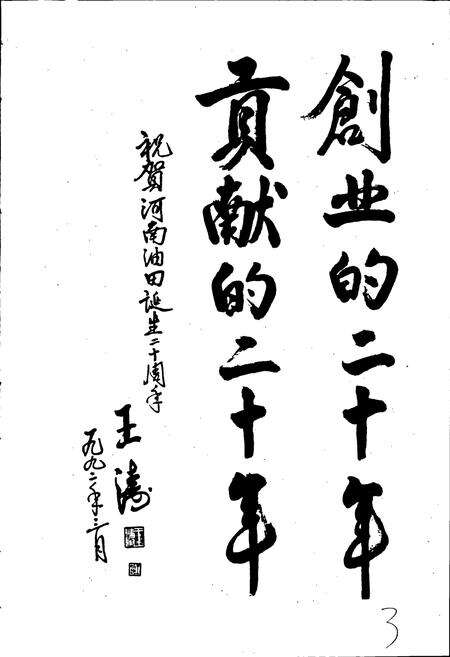 創业的二十年
貢献的二十年
祝贺河南油田誕生二十周年
王涛
一九九二年三月
3